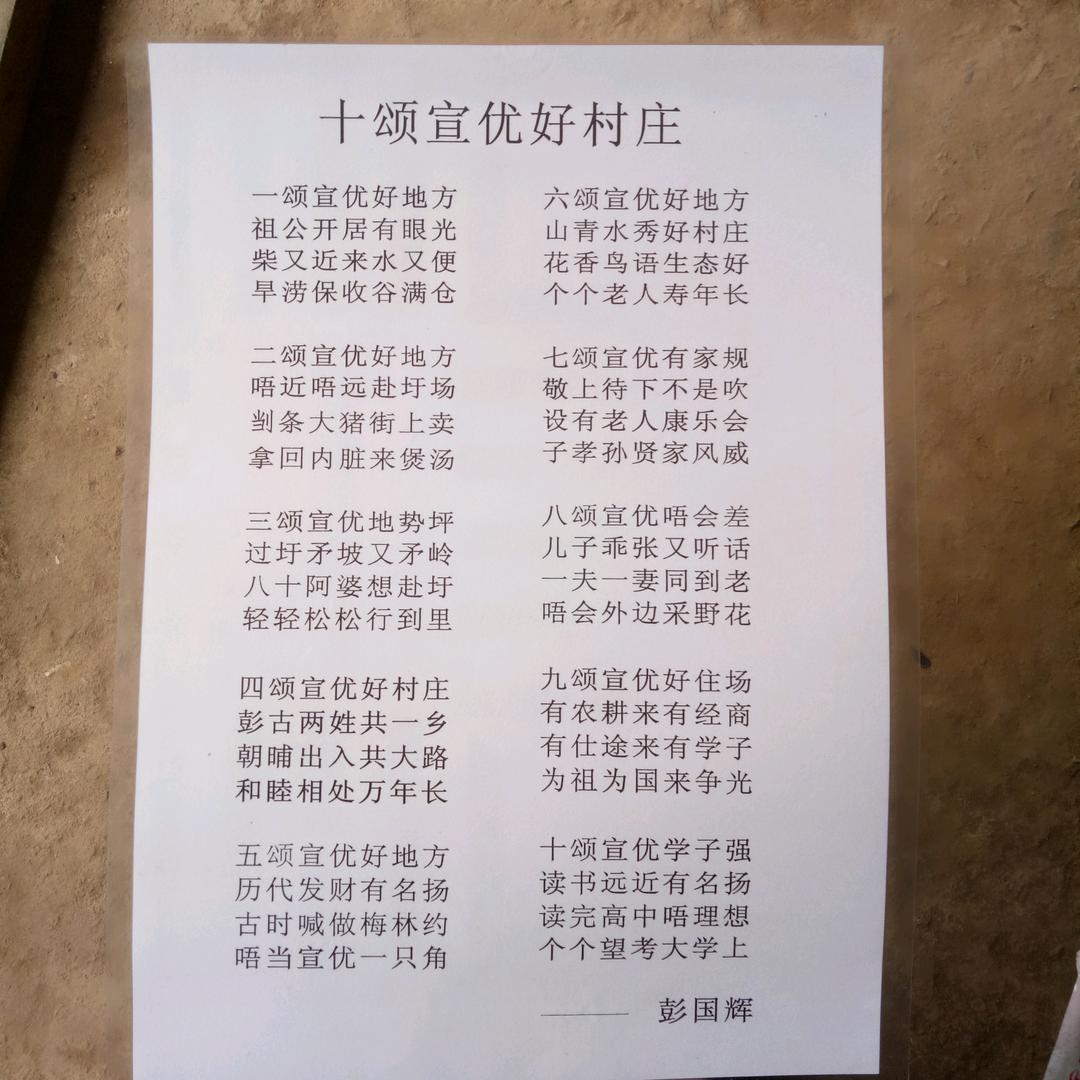 十颂宣优好村庄
一颂宣优好地方
祖公开居有眼光
柴又近来水又便
旱涝保收谷满仓
二颂宣优好地方
唔近唔远赴圩场
㓥条大猪街上卖
拿回内脏来煲汤
三颂宣优地势坪
过圩矛坡又矛岭
八十阿婆想赴圩
轻轻松松行到里
四颂宣优好村庄
彭古两姓共一乡
朝晡出入共大路
和睦相处万年长
五颂宣优好地方
历代发财有名扬
古时喊做梅林约
唔当宣优一只角
六颂宣优好地方
山青水秀好村庄
花香鸟语生态好
个个老人寿年长
七颂宣优有家规
敬上待下不是吹
设有老人康乐会
子孝孙贤家风威
八颂宣优唔会差
儿子乖张又听话
一夫一妻同到老
唔会外边采野花
九颂宣优好住场
有农耕来有经商
有仕途来有学子
为祖为国来争光
十颂宣优学子强
读书远近有名扬
读完高中唔理想
个个望考大学上
——— 彭国辉